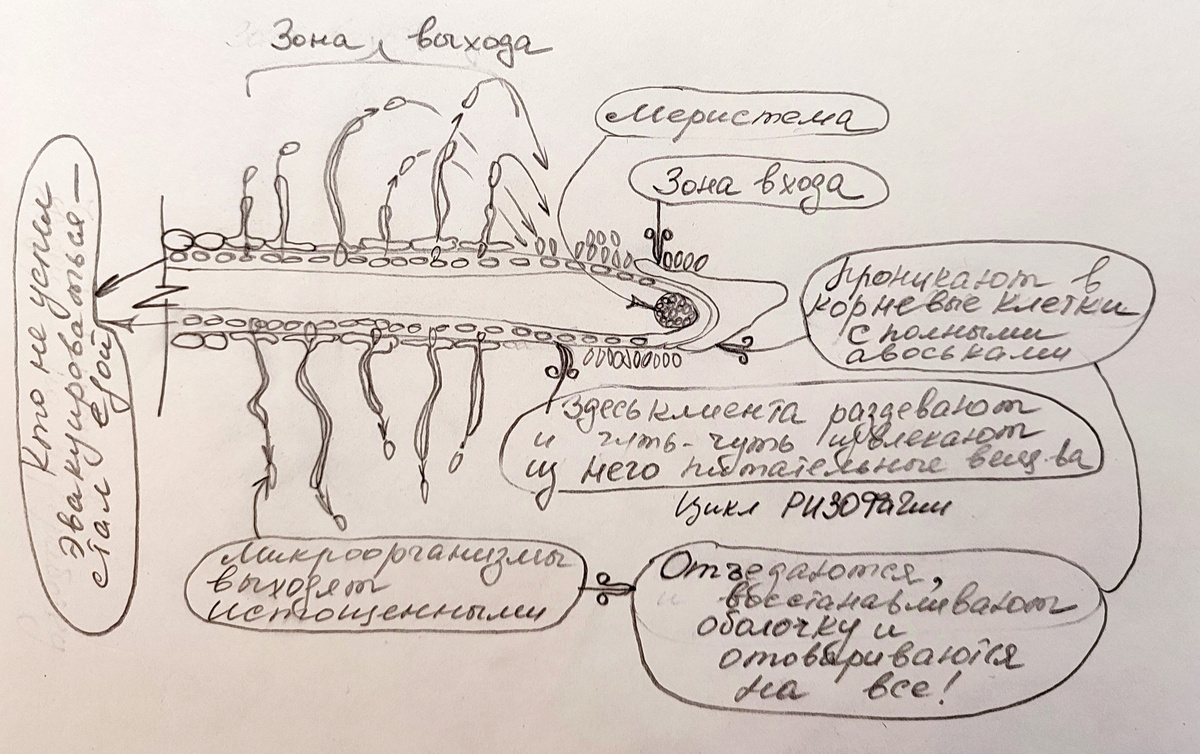 Зона выхода
Меристема
Зона входа
Проникают в
корневые клетки
с полными
авоськами
Кто не успел
эвакуироваться —
стал едой
Здесь клиента раздевают
и чуть-чуть извлекают
из него питательные вещ-ва
Цикл РИЗОФагии
Микроорганизмы
выходят
истощенными
Отъедаются,
восстанавливают
оболочку и
отовариваются
на все!